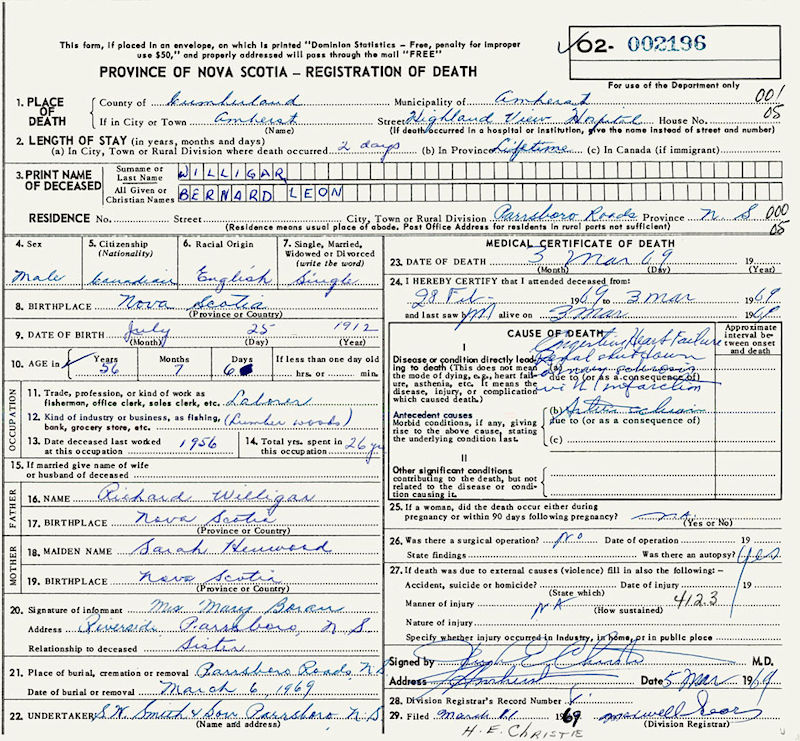 This form, if placed in an envelope, on which is printed "Dominion Statistics – Free, penalty for improper
use $50," and properly addressed will pass through the mail "FREE"
✓02- 002196
PROVINCE OF NOVA SCOTIA – REGISTRATION OF DEATH
For use of the Department only
1. PLACE OF DEATH County of Cumberland Municipality of Amherst 001
If in City or Town Amherst Street Highland View Hospital House No. 05
(Name) (If death occurred in a hospital or institution, give the name instead of street and number)
2. LENGTH OF STAY (in years, months and days)
(a) In City, Town or Rural Division where death occurred 2 days (b) In Province Lifetime (c) In Canada (if immigrant)
3. PRINT NAME OF DECEASED
Surname or Last Name WILLIGAR
All Given or Christian Names BERNARD LEON
RESIDENCE No. Street City, Town or Rural Division Parrsboro Roads Province N S 000
(Residence means usual place of abode. Post Office Address for residents in rural parts not sufficient) 05
4. Sex
Male
5. Citizenship
(Nationality)
Canadian
6. Racial Origin
English
7. Single, Married,
Widowed or Divorced
(write the word)
Single
8. BIRTHPLACE Nova Scotia
(Province or Country)
9. DATE OF BIRTH July 25 1912
(Month) (Day) (Year)
10. AGE in Years Months Days If less than one day old
56 7 6 hrs. or min.
OCCUPATION
11. Trade, profession, or kind of work as
fishermen, office clerk, sales clerk, etc. Laborer
12. Kind of industry or business, as fishing,
bank, grocery store, etc. (Lumber woods)
13. Date deceased last worked
at this occupation 1956
14. Total yrs. spent in
this occupation 26 yr
15. If married give name of wife
or husband of deceased
FATHER
16. NAME Richard Willigar
17. BIRTHPLACE Nova Scotia
(Province or Country)
MOTHER
18. MAIDEN NAME Sarah Henwood
19. BIRTHPLACE Nova Scotia
(Province or Country)
20. Signature of informant Mrs Mary Boran
Address Riverside, Parrsboro, N S
Relationship to deceased Sister
21. Place of burial, cremation or removal Parrsboro Roads N S
Date of burial or removal March 6, 1969
22. UNDERTAKER S.W. Smith & Son Parrsboro, N S
(Name and address)
MEDICAL CERTIFICATE OF DEATH
23. DATE OF DEATH 3 Mar 69 19
(Month) (Day) (Year)
24. I HEREBY CERTIFY that I attended deceased from:
28 Feb 1969 to 3 Mar 1969
and last saw him alive on 3 Mar 1969
CAUSE OF DEATH
Approximate
interval be-
tween onset
and death
I
Disease or condition directly lead-
ing to death (This does not mean
the mode of dying, e.g., heart fail-
ure, asthenia, etc. It means the
disease, injury, or complication
which caused death.)
Congestive Heart Failure
(a) Renal shut down
due to (or as a consequence of)
infarction
Antecedent causes
Morbid conditions, if any, giving
rise to the above cause, stating
the underlying condition last.
(b)
due to (or as a consequence of)
(c)
II
Other significant conditions
contributing to the death, but not
related to the disease or condi-
tion causing it.
25. If a woman, did the death occur either during
pregnancy or within 90 days following pregnancy?
(Yes or No)
26. Was there a surgical operation? No Date of operation 19
State findings Was there an autopsy? Yes
27. If death was due to external causes (violence) fill in also the following –
Accident, suicide or homicide? Date of injury 19
(State which)
Manner of injury NA 4123
(How sustained)
Nature of injury
Specify whether injury occurred in industry, in home, or in public place
Signed by Hugh E Christie M.D.
Address Amherst Date 5 Mar 1969
28. Division Registrar's Record Number
29. Filed March 11 1969 Maxwell
(Division Registrar)
H. E. CHRISTIE